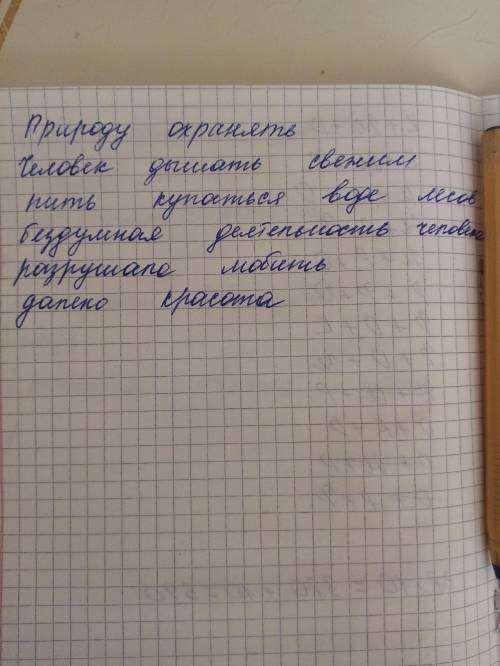 Природу охранять
Человек дышать свежим
пить купаться воде лесов
бездумная деятельность человека
разрушала любить
далеко красота